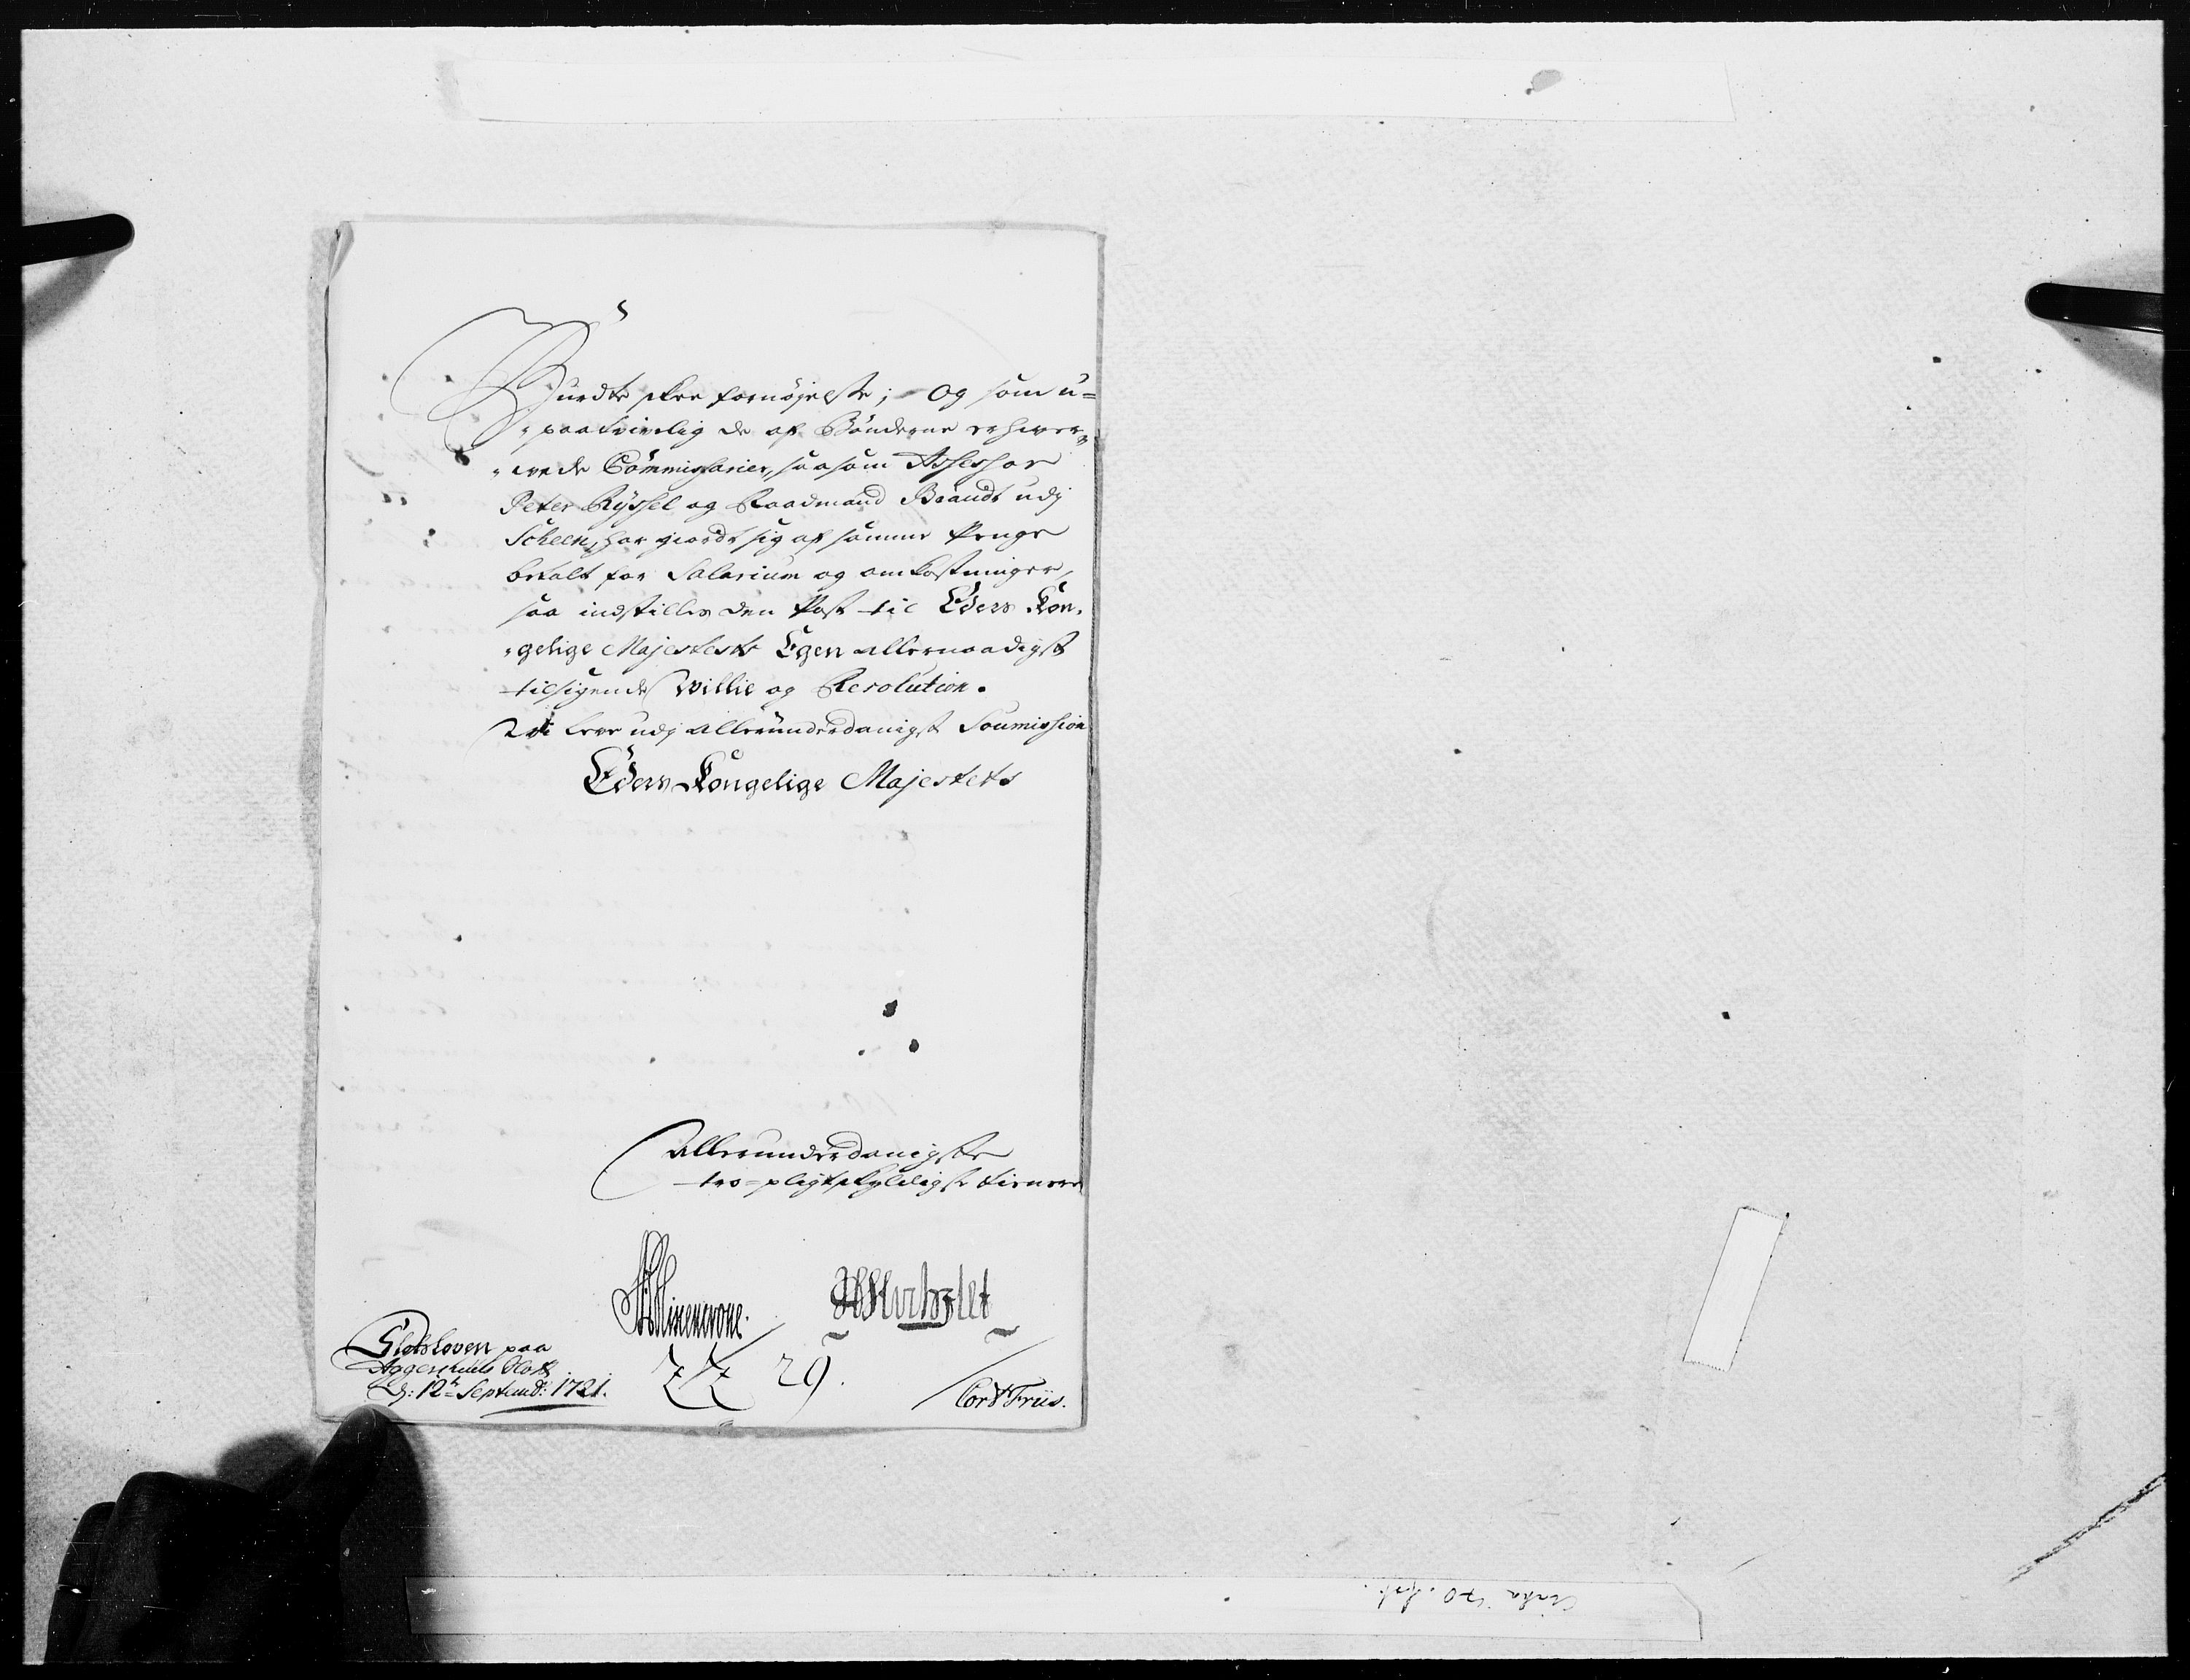 Burdte skee fornøjelse; Og som u-
paatvivlig de af Bønderne erhver-
vede Commissarier, saasom Assessor
Peter Rÿssel og Raadmand Brandt udj
Scheen, har giordt sig af samme Penge
betalt for Salarium og omkostninger,
saa indstilles den Post til Eders Kon-
gelige Majestets Egen allernaadigst
tilsigende Willie og Resolution.
leve udj allerunderdanigst Soumission
Eders Kongelige Majestets
allerunderdanigste
troe-pligtskyldigste tienere
Slotsloven paa
Aggershuus Slott
d: 12te Septemb: 1721.
29.
Cort Friis.